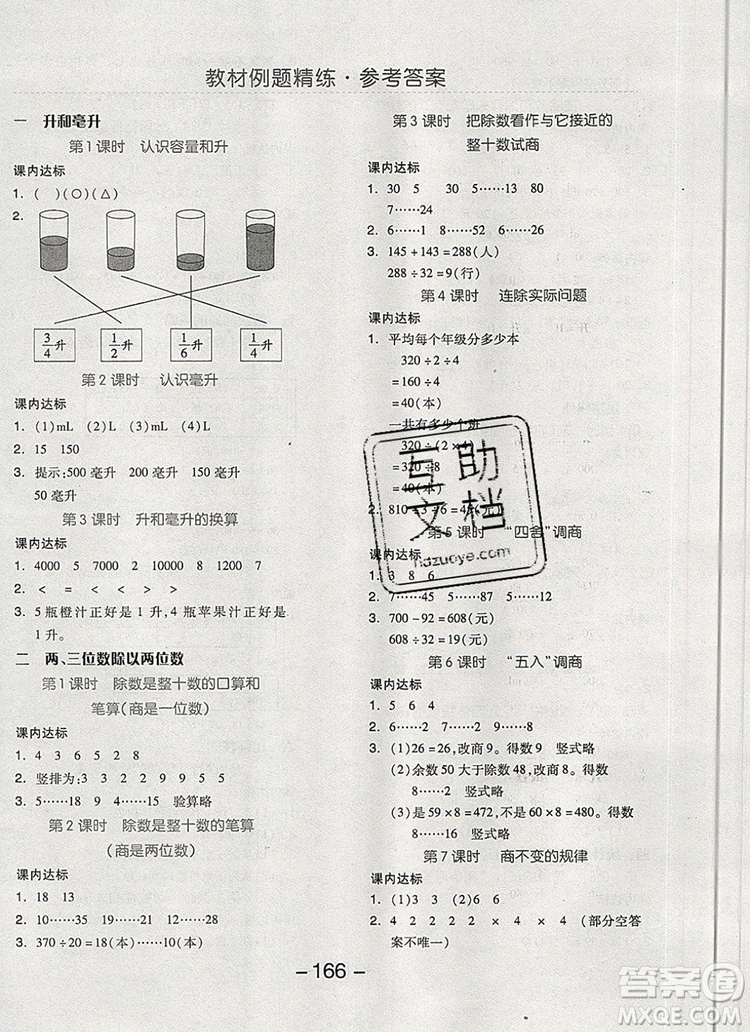 教材例题精练·参考答案
一 升和毫升
第1课时 认识容量和升
课内达标
1. ( )(○)(△)
2.
3/4升 1/2升 1/6升 1/4升
第2课时 认识毫升
课内达标
1. (1)mL (2)L (3)mL (4)L
2. 15 150
3. 提示:500毫升 200毫升 150毫升
50毫升
第3课时 升和毫升的换算
课内达标
1. 4000 5 7000 2 12000 7
2. < = < > > <
3. 5瓶橙汁正好是1升,4瓶苹果汁正好是
1升。
二 两、三位数除以两位数
第1课时 除数是整十数的口算和
笔算(商是一位数)
课内达标
1. 4 3 6 5 2 8
2. 竖排为:3 3 2 2 9 9 5 5
3. 5……15 8……5 验算略
第2课时 除数是整十数的笔算
(商是两位数)
课内达标
1. 18 13
2. 10……35 19……15 12……28
3. 370÷20=18(本)……10(本)
第3课时 把除数看作与它接近的
整十数试商
课内达标
1. 30 5 30 5……13 80
7……24
2. 6……1 8……52 6……26
3. 145+143=288(人)
288÷32=9(行)
第4课时 连除实际问题
课内达标
1. 平均每个年级分多少本
320÷2÷4
=160÷4
=40(本)
一共有多少个班
320÷(2×4)
=320÷8
=40(本)
2. 810÷3÷6=45(
第5课时 “四舍”调商
课内达标
1. 3 8 6
2. 7……45 5……87 5……12
3. 700-92=608(元)
608÷32=19(元)
第6课时 “五入”调商
课内达标
1. 5 6 4
2. 6……2 7……2 9……9
3. (1)26=26,改商9。得数9 竖式略
(2)余数50大于除数48,改商8。得数
8……2 竖式略
(3)是59×8=472,不是60×8=480。得数
8……8 竖式略
第7课时 商不变的规律
课内达标
1. (1)3 3 (2)6 6
2. 4 2 2 2 × 4 × 4 (部分空答
案不唯一)
-166-
互助
文档
hdzuoye.com
答案圈
MXQE.COM